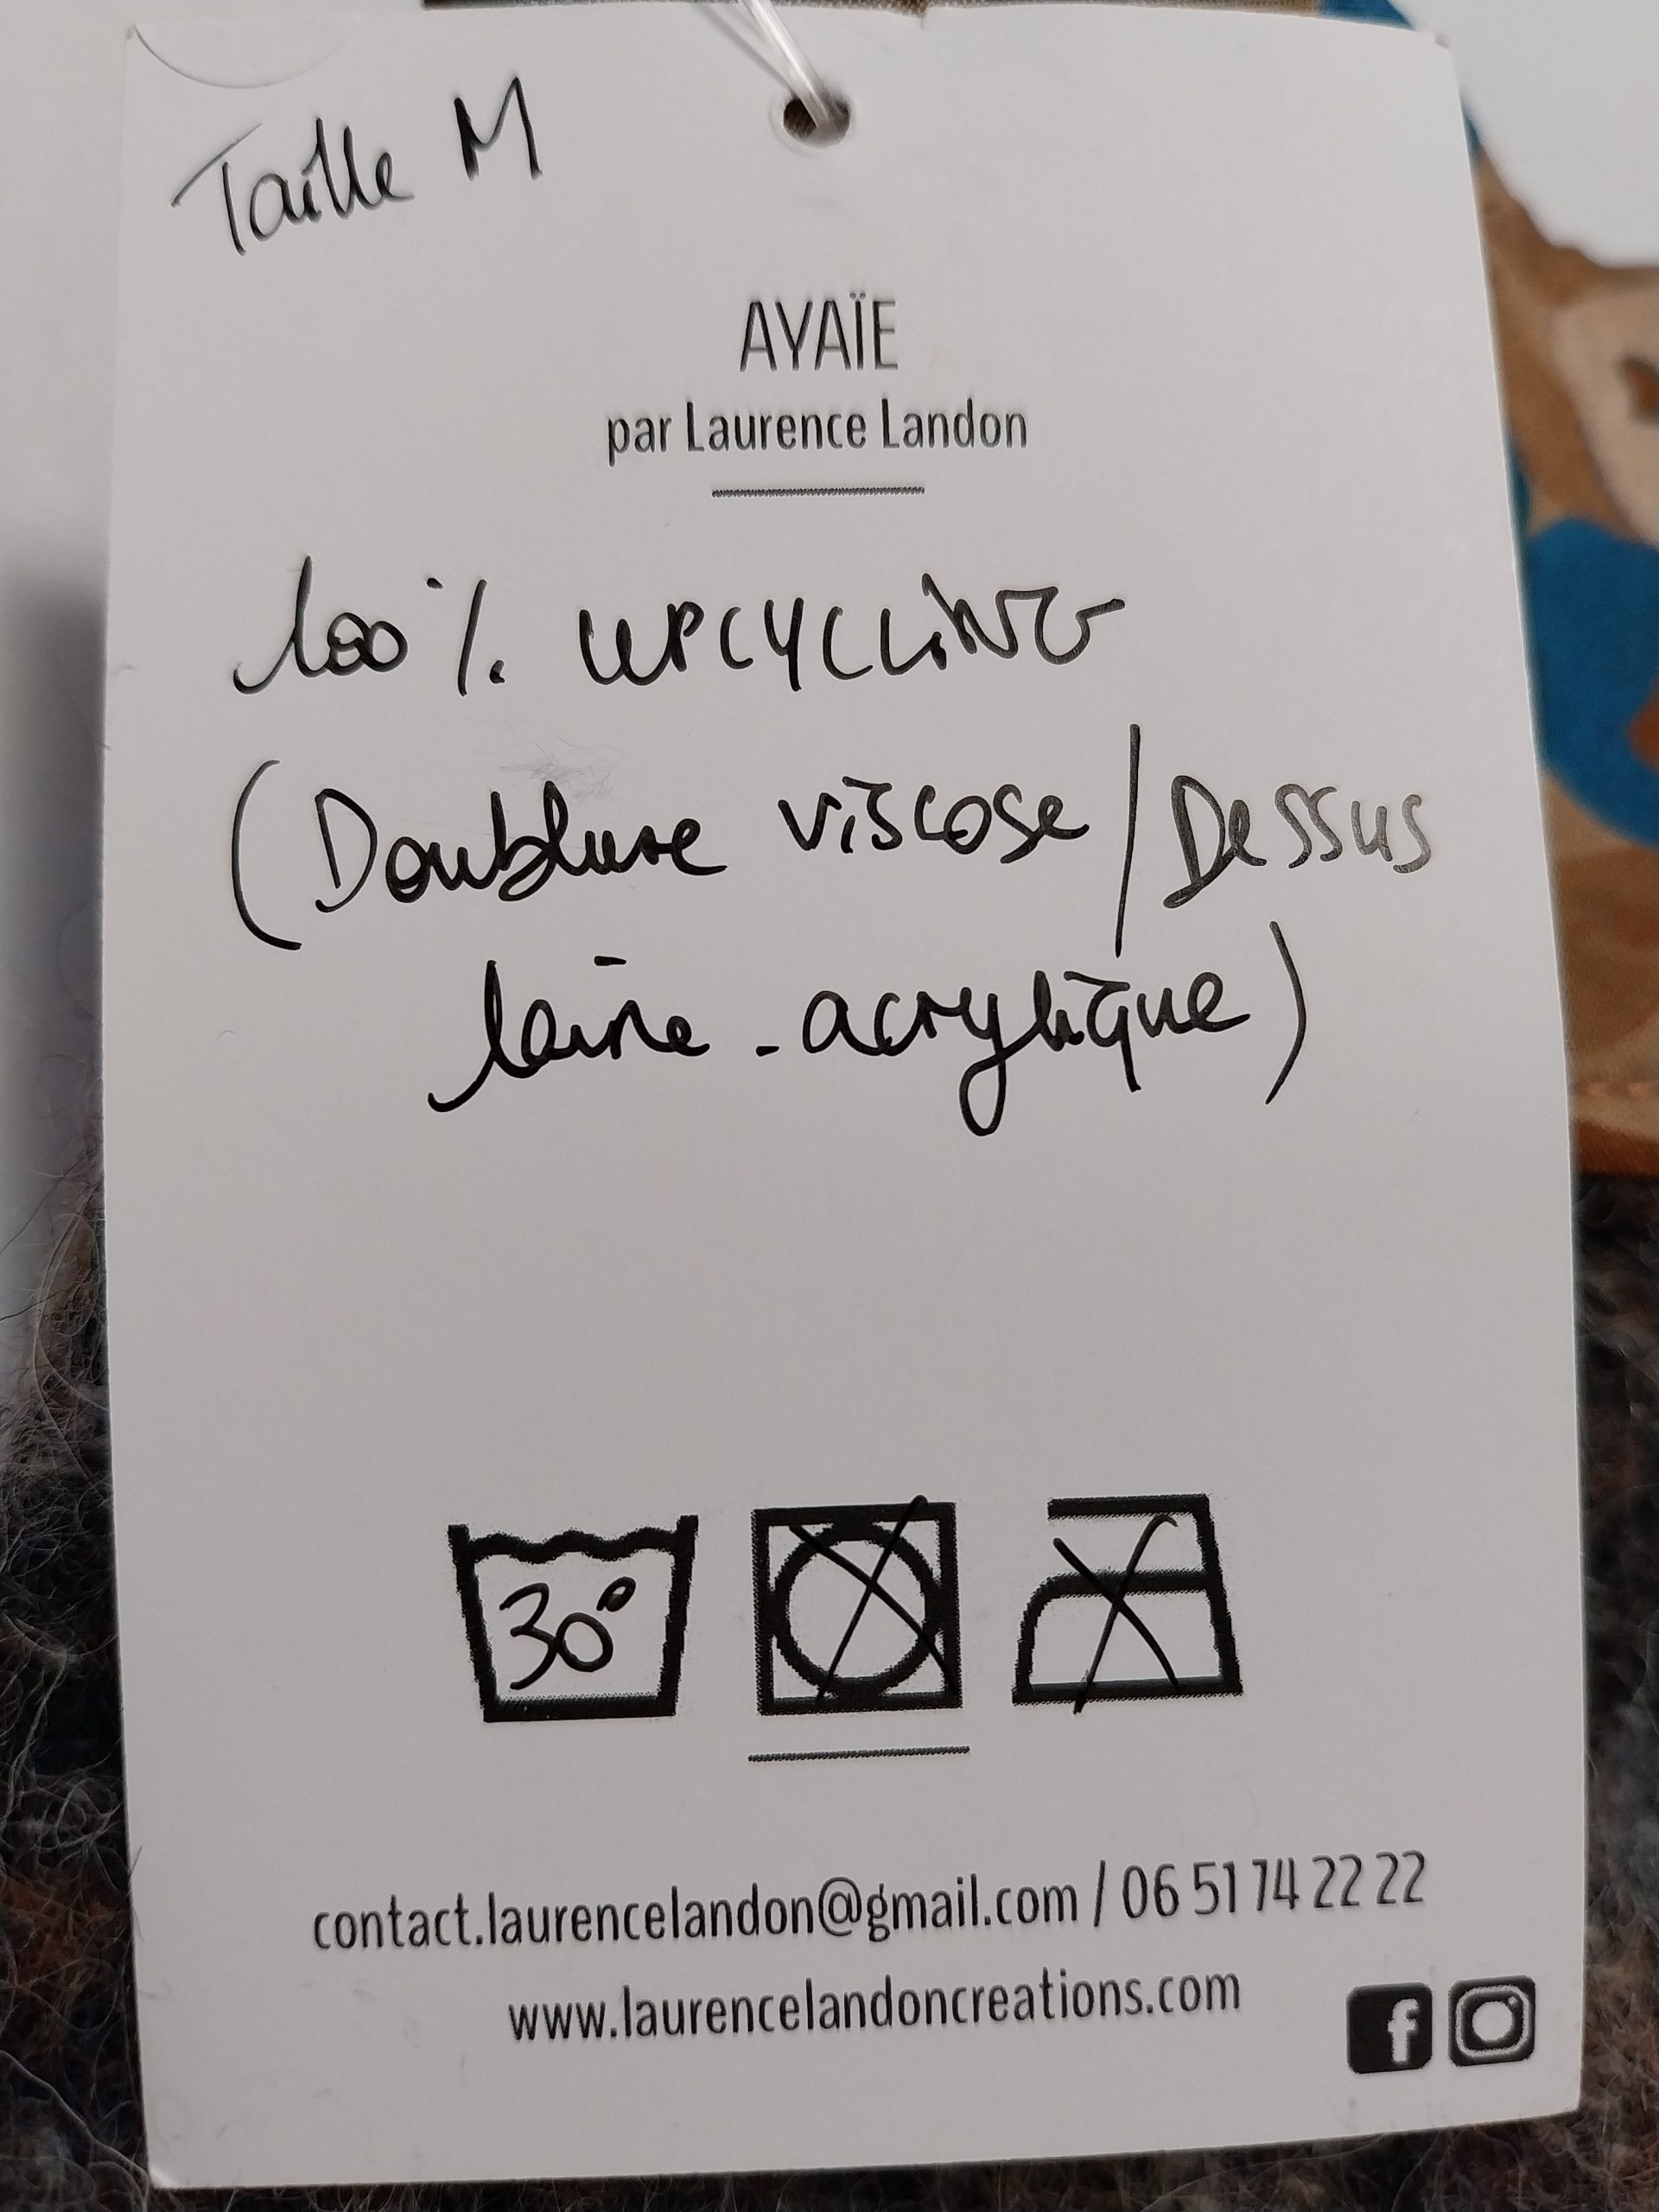 Taille M
AYAÏE
par Laurence Landon
100 % UPCYCLING
(Doublure viscose / Dessus
laine - acrylique)
30°
contact.laurencelandon@gmail.com / 06 51 74 22 22
www.laurencelandoncreations.com